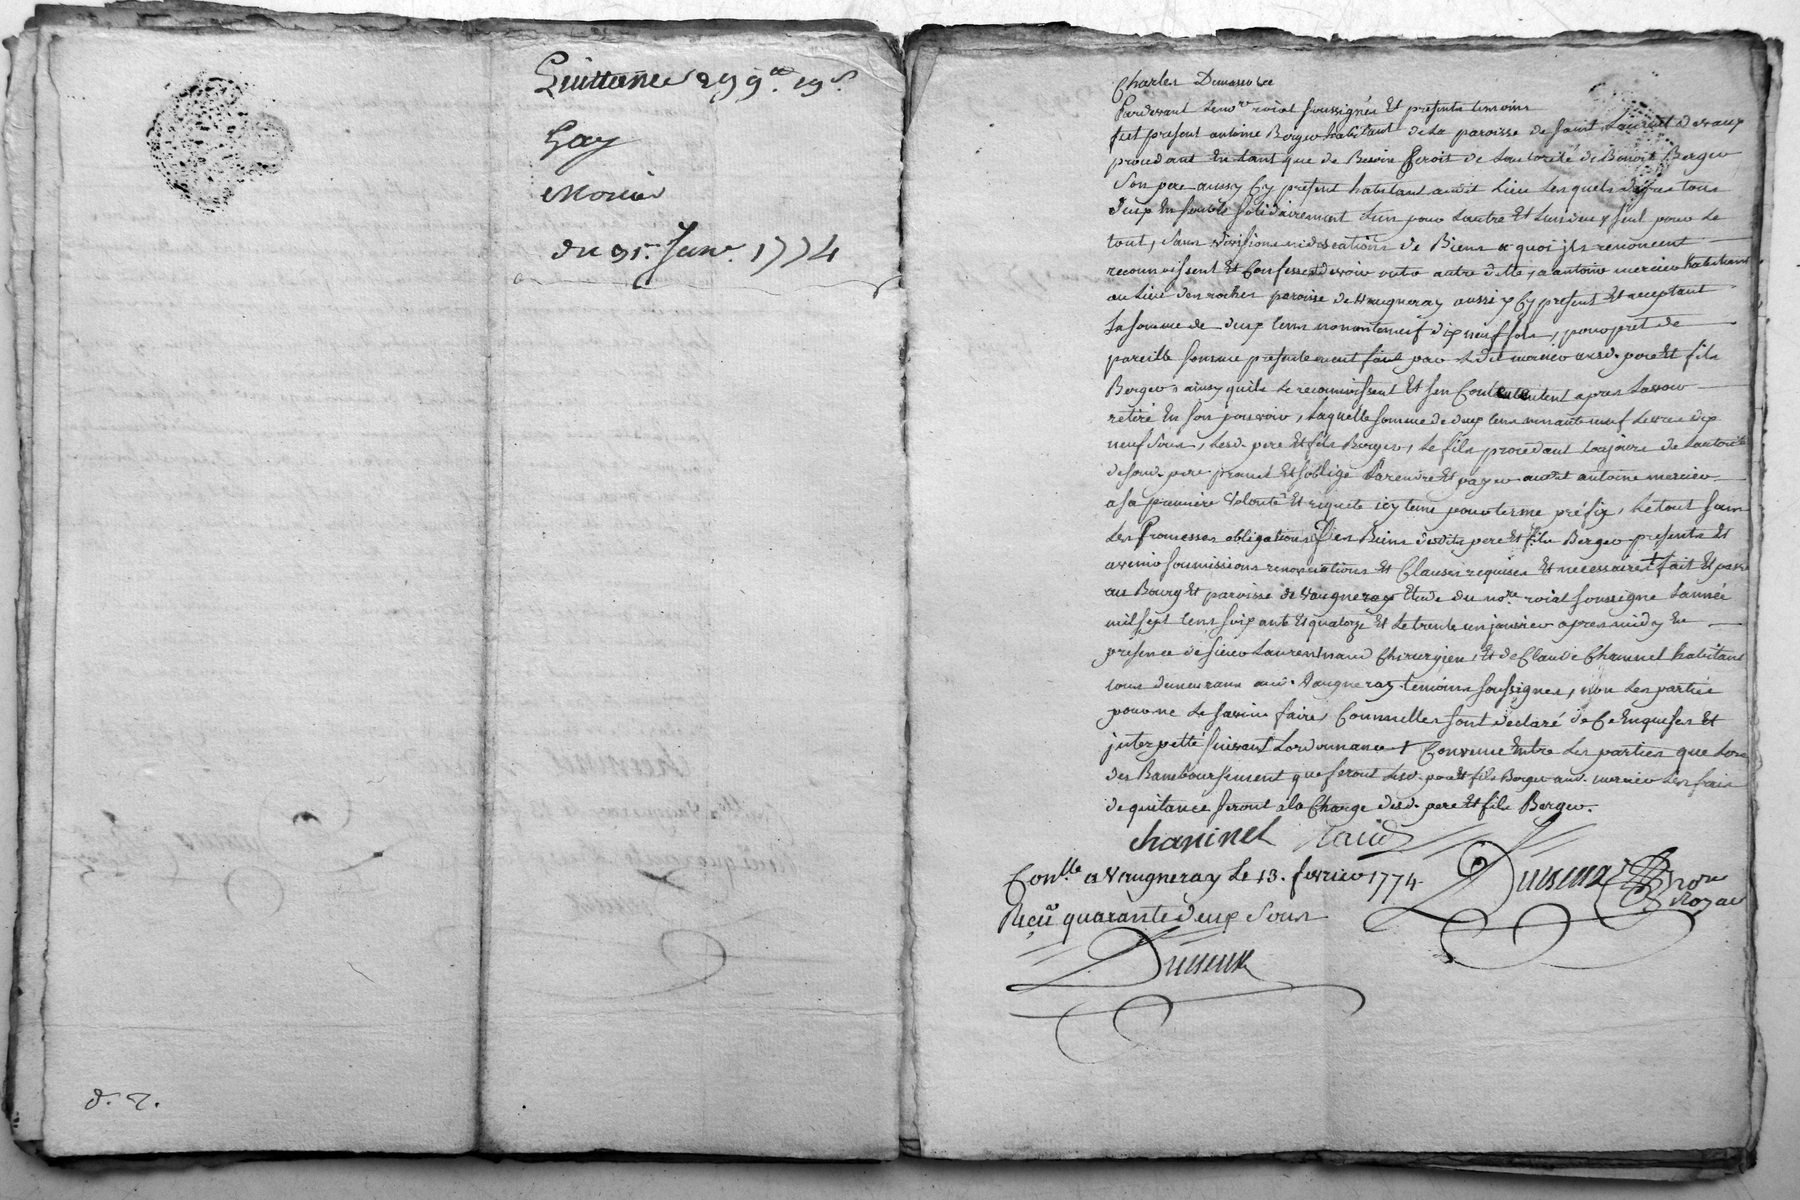 Quittance 299ᵗᵗ 19ˢ
Gay
du 31. Janv. 1774
d. 2.
Charles
Pardevant le noʳᵉ roial soussignés Et presents temoins
fut present antoine Berger habitant de la paroisse de saint Laurent de vaux
procedant En tant que de Besoin seroit de Lautorité de Benoit Berger
Son pere aussy Cy present habitant audit Lieu Lesquels tous
deux Ensemble solidairement Lun pour Lautre Et Lun deux seul pour Le
tout, sans divisions ni discutions de Biens a quoi jls renoncent
reconnoissent Et Confessent devoir outre autre dette, a antoine mercier habitant
au Lieu des roches paroisse de Vaugneray aussi Cy present Et acceptant
La somme de deux Cens nonanteneuf dix neuf sols, pour pret de
pareille somme presentement fait par Ledit mercier auxd. pere Et fils
Berger ainsy quils Le reconnoissent Et sen Contentent apres Lavoir
retiré En son pouvoir, Laquelle somme de deux Cens nonante neuf Livres dix
neuf Sous, Lesd. pere Et fils Berger, Le fils procedant toujours de Lautorité
de sond. pere promet Et soblige a rendre Et payer audit antoine mercier
a sa premiere volonté Et requete icy tenu pour terme préfix, Le tout sous
Les Promesses obligations Des Biens desdits pere Et fils Berger presents Et
avenir soumissions renonciations Et Clauses requises Et necessaires + fait Et passé
au Bourg Et paroisse de Vaugneray Etude du noʳᵉ roial soussigné Lannée
mil sept Cens soixante Et quatorze Et Le trente un janvier apres midy En
presence de sieur Laurent naud Chirurgien, Et de Claude Chaninel habitant
tous demeurans aud. Vaugneray temoins soussignes, non Les parties
pour ne Le savoir faire Comme Elles sont declaré de Ce Enquises Et
interpellé suivant Lordonnance + Convenu Entre Les parties que Lors
des Rambourssement que feront Lesd. pere Et fils Berger aud. mercier Les frais
de quitance seront a la Charge desd. pere Et fils Berger.
Chaninel naud
Conᵗˡˡᵉ a Vaugneray Le 13. fevrier 1774
noʳᵉ
Royal
Reçu quarante deux Sous